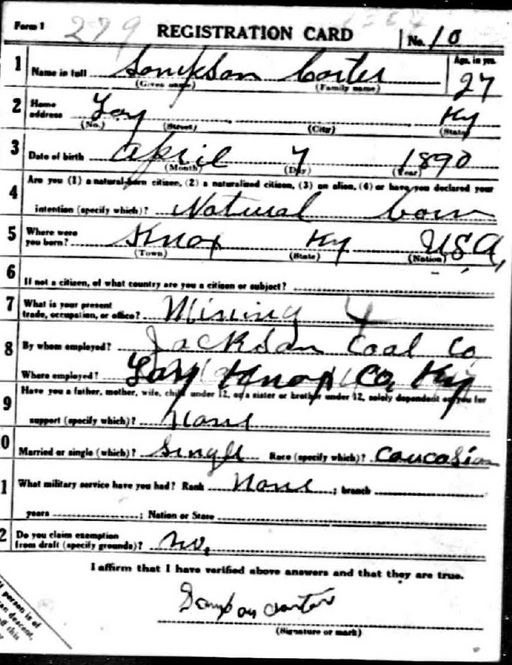 Form 1 279 REGISTRATION CARD No. 10
1 Name in full Carter Age, in yrs. 27
(Given name) (Family name)
2 Home address Ky
(No.) (Street) (City) (State)
3 Date of birth April 7 1890
(Month) (Day) (Year)
4 Are you (1) a natural-born citizen, (2) a naturalized citizen, (3) an alien, (4) or have you declared your
intention (specify which)? Natural born
5 Where were you born? Knox Ky USA,
(Town) (State) (Nation)
6 If not a citizen, of what country are you a citizen or subject?
7 What is your present trade, occupation, or office? Mining 4
8 By whom employed? Jackson Coal Co
Where employed? Knox Co, Ky
9 Have you a father, mother, wife, child under 12, or a sister or brother under 12, solely dependent on you for
support (specify which)? None
0 Married or single (which)? Single Race (specify which)? Caucasian
1 What military service have you had? Rank None ; branch
years ; Nation or State
2 Do you claim exemption from draft (specify grounds)? No,
I affirm that I have verified above answers and that they are true.
(Signature or mark)
person is of
an descent,
off this